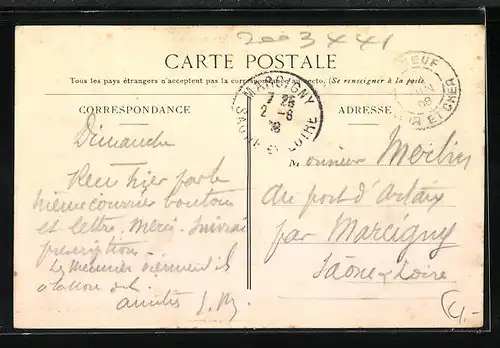 2003441
CARTE POSTALE
Tous les pays étrangers n'acceptent pas la correspondance au recto. (Se renseigner à la poste)
CORRESPONDANCE
ADRESSE
MARCIGNY
7 25
2 - 6
SAONE-ET-LOIRE
NEUF
JUIN
08
LOIR ET CHER
Dimanche
Reçu hier par le
même courrier boutons
et lettre. Merci. Suivrai
prescriptions.
Les Meunier viennent ils
amitiés
Monsieur Merlin
au port d'Artaix
par Marcigny
Saône & Loire
4.-